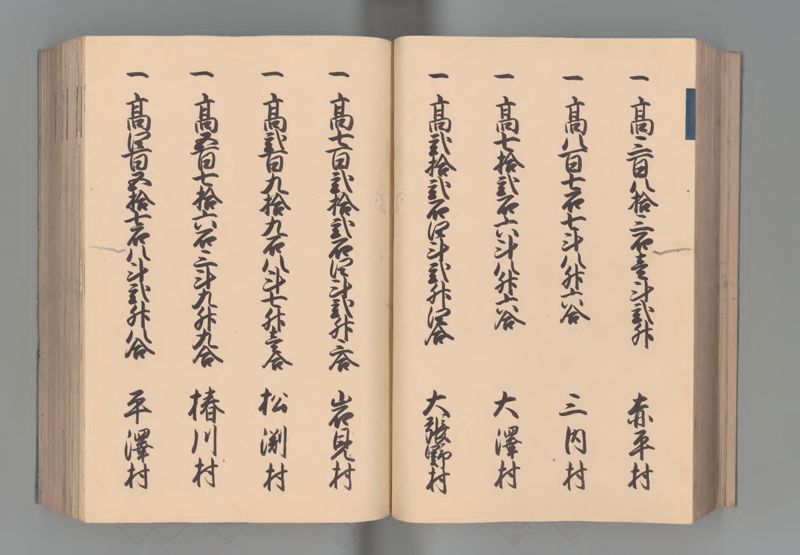 一 高三百八拾三石壱斗弐升 赤平村
一 高八百七石七斗八升六合 三内村
一 高七拾弐石六斗八升六合 大澤村
一 高弐拾弐石四斗弐升四合 大張野村
一 高七百弐拾弐石四斗弐升二合 岩見村
一 高弐百九拾九石八斗七升壱合 松渕村
一 高五百七拾六石三斗九升九合 椿川村
一 高四百五拾七石八斗弐升八合 平澤村